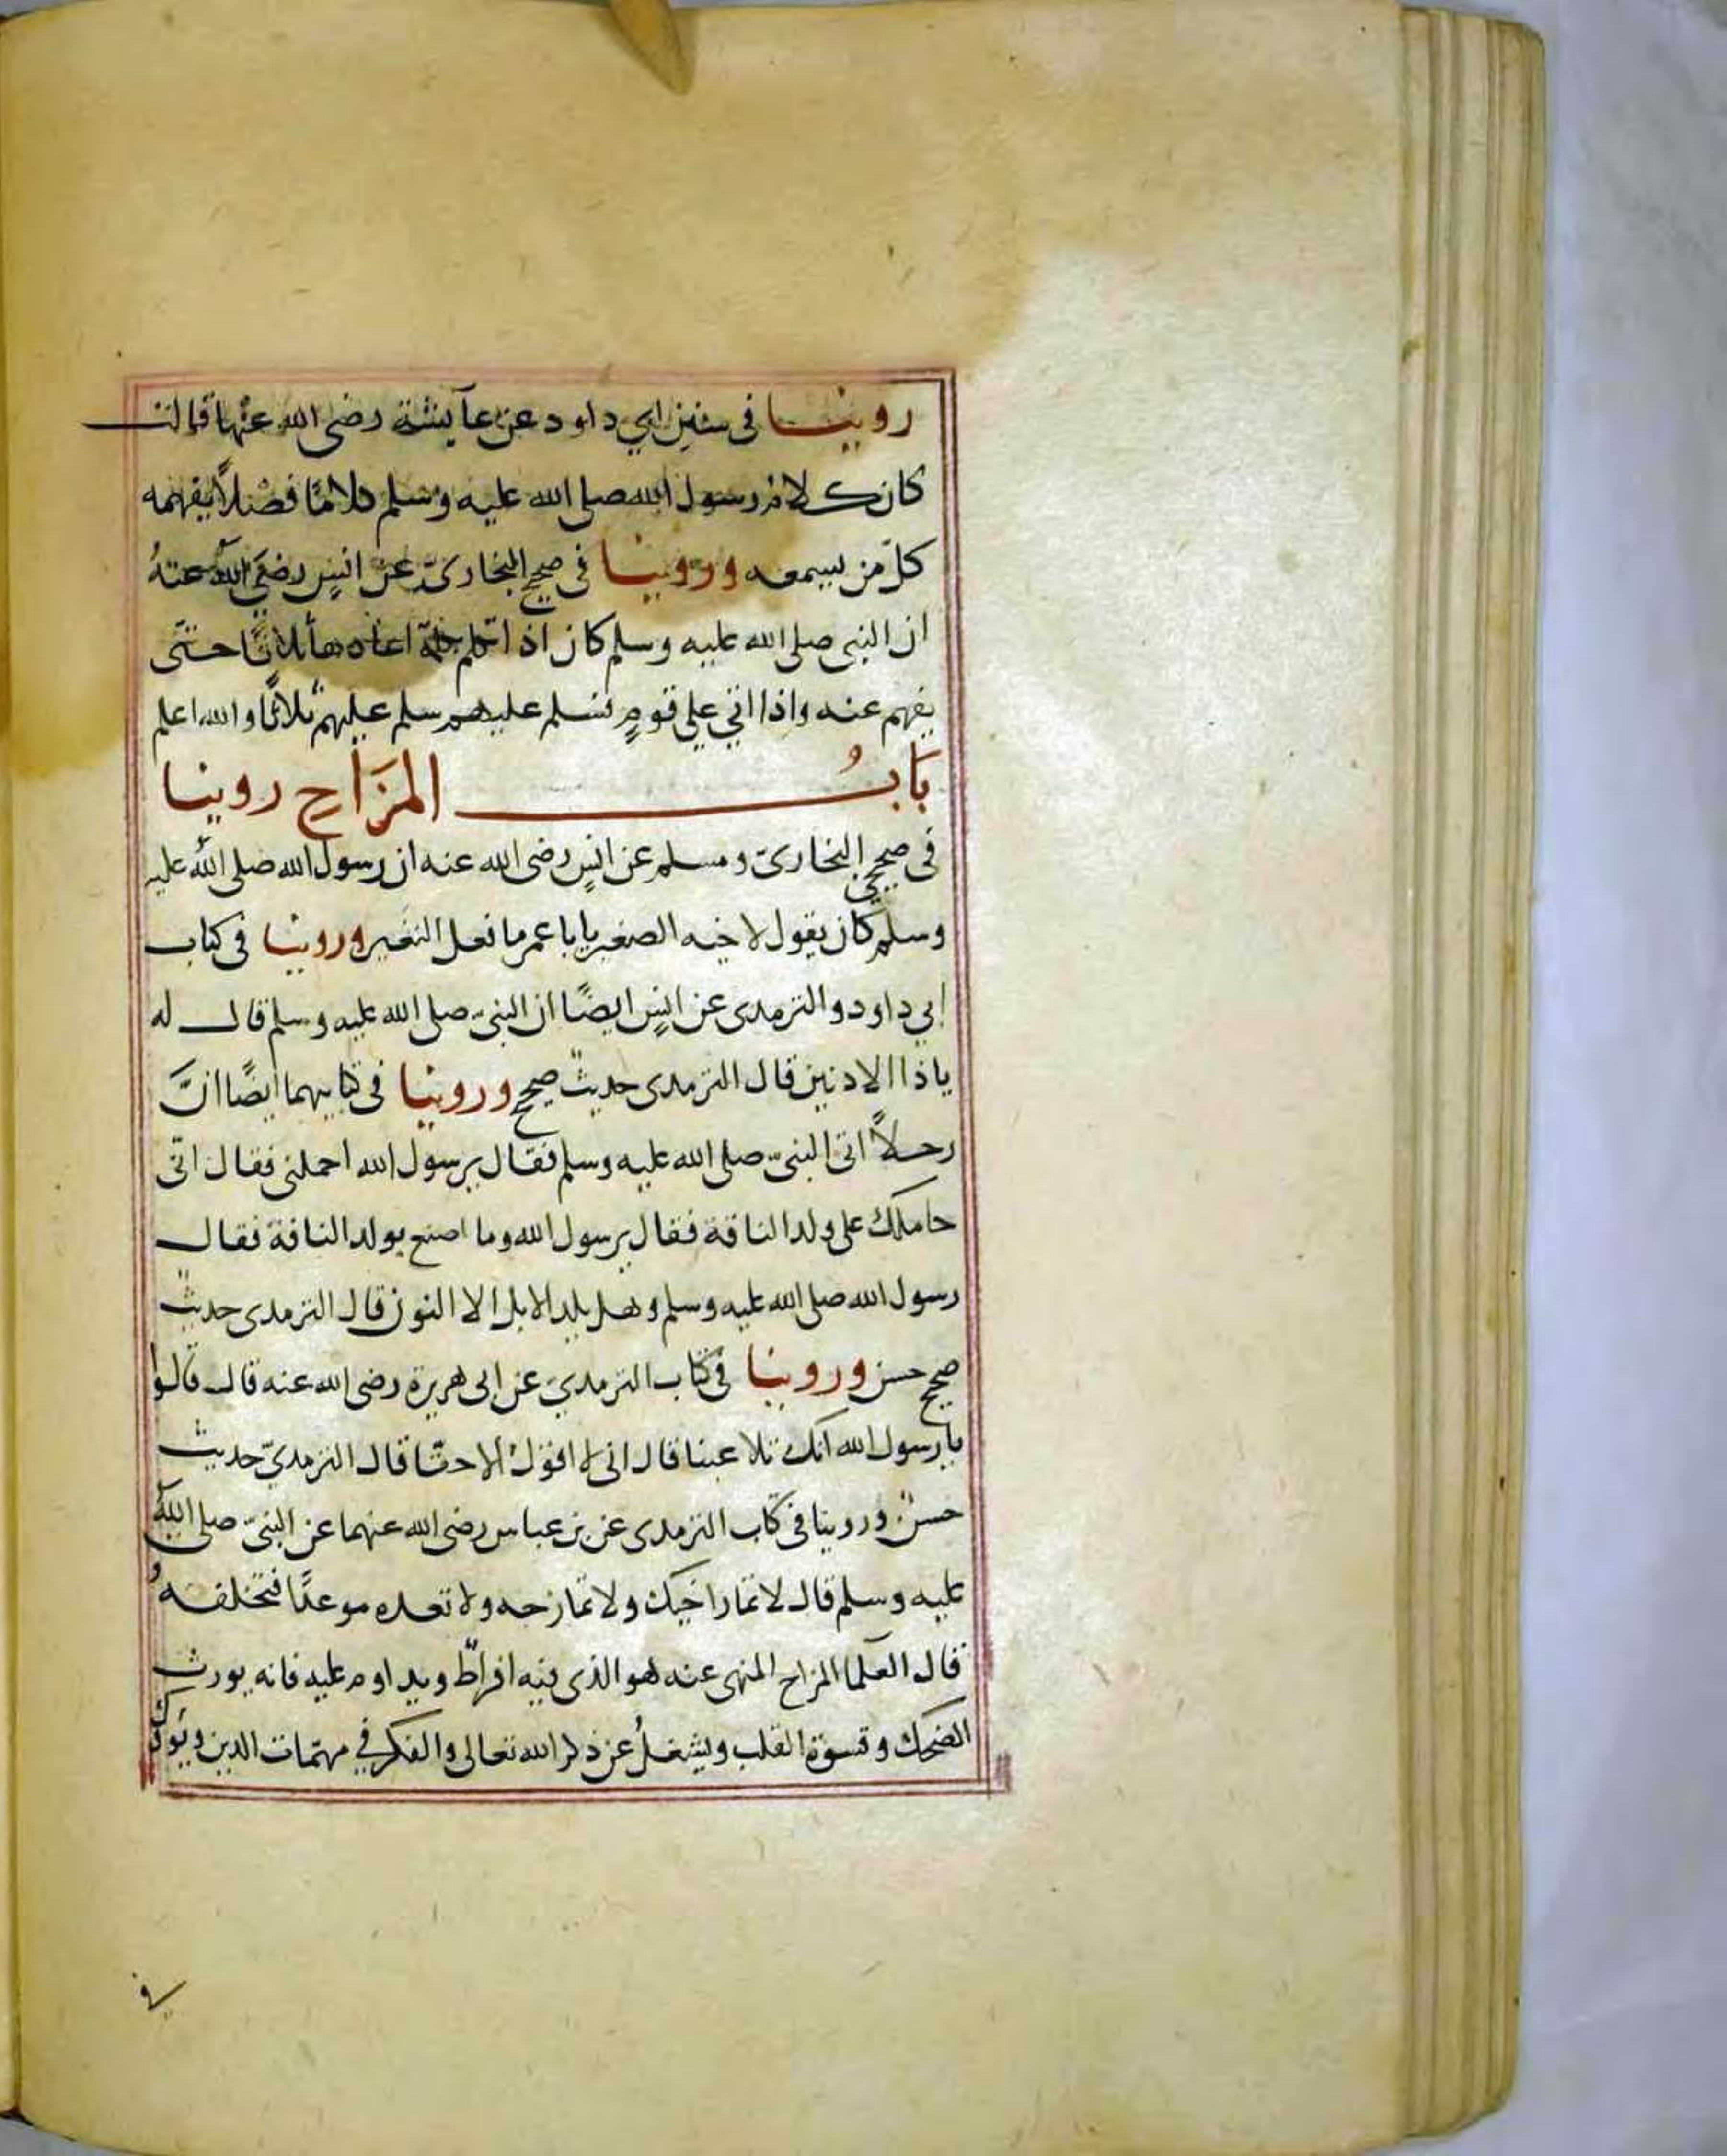 روينا في سنن ابي داود عن عآيشة رضى الله عنها قالت
كان كلام رسول الله صلى الله عليه وسلم كلامًا فصْلاً يفهمه
كلّ من يسمعه وروينا فى صحيح البخارىّ عن انسٍ رضيَ الله عنهُ
ان النبى صلى الله عليه وسلم كان اذا تكلم بكلمة اعادها ثلاثًا حتّى
يفهم عنه واذا اتي علي قومٍ فسلم عليهم سلم عليهم ثلاثًا والله اعلم
بَابُ المزَاحِ روينا
فى صحيحي البخارىّ ومسلم عن انسٍ رضى الله عنه ان رسول الله صلى الله عليه
وسلم كان يقول لاخيه الصغير يابا عمر ما نعل النغَير وروينا فى كتاب
ابي داود والترمدى عن انسٍ ايضًا ان النبىّ صلى الله عليه وسلم قال له
ياذا الادنين قال الترمدى حديث صحيح وروينا فى كتابيهما ايضًا انَّ
رجلاً اتى النبىّ صلى الله عليه وسلم فقال يرسول الله احملنى فقال انّى
حاملك على ولد الناقة فقال يرسول الله وما اصنع بولد الناقة فقال
رسول الله صلى الله عليه وسلم وهل يلد الابل الا النوق قال الترمدى حديث
صحيح حسن وروينا فى كتاب الترمدي عن ابى هريرة رضى الله عنه قال قالوا
يارسول الله انك تلاعبنا قال انى لا اقول الا حقّا قال الترمديّ حديث
حسن وروينا فى كتاب الترمدى عن بن عباس رضى الله عنهما عن النبىّ صلى الله
عليه وسلم قال لا تمار اخيك ولا تمازحه ولا تعده موعدًا فتخلفه
قال العلما المزاح المنهى عنه هو الذى فيه افراط ويداوم عليه فانه يورث
الضحك وقسوة القلب ويشغلُ عن ذكر الله تعالى والفكر في مهمّات الدين ويَوك
في